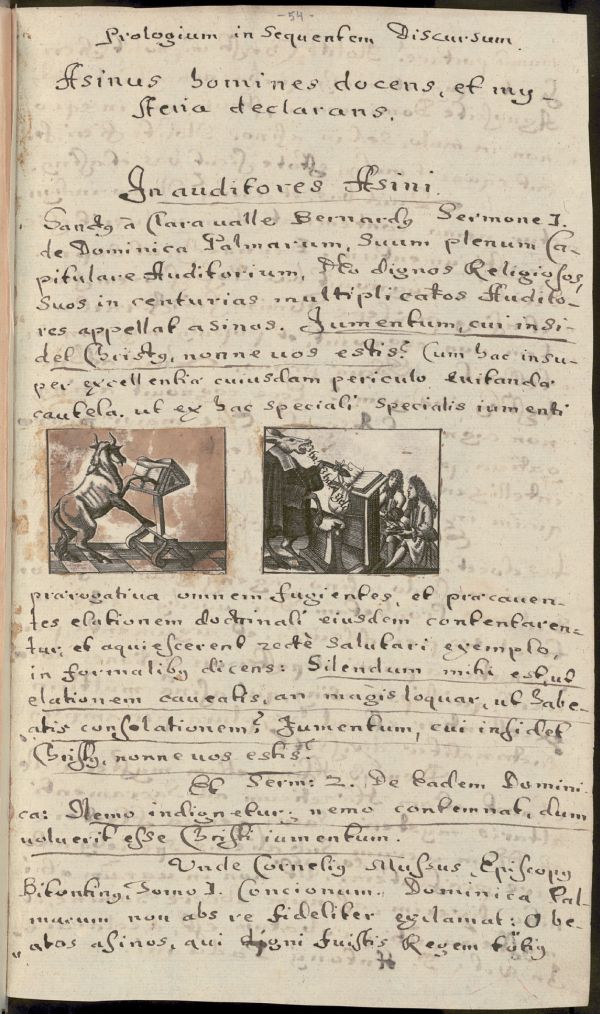 -54-
Prologium in Sequentem Discursum.
Asinus homines docens, et my-
steria declarans.
In auditores Asini.
Sanctus à Claraualle Bernardus Sermone I.
de Dominica Palmarum, Suum plenum Ca-
pitulare Auditorium, dignos Religiosos,
Suos in centurias multiplicatos Audito-
res appellat asinos. Jumentum, cui insi-
det Christus, nonne uos estis? Cum hac insu-
per excellentia cuiusdam periculo euitanda
cautela. ut ex hac speciali specialis iumenti
praerogatiua omnem fugientes, et praecauen-
tes elationem doctrinali eiusdem contentaren-
tur, et aquiescerent rectè salutari exemplo,
in formalibus dicens: Silendum mihi est, ut
elationem caueatis, an magis loquar, ut habe-
atis consolationem? Jumentum, cui insidet
Christus, nonne uos estis?
Et Serm: 2. De eadem Domini-
ca: Nemo indignetur; nemo contemnat, dum
uoluerit esse Christi iumentum.
Unde Cornelius Mussus, Episcopus
Bitontinus, Tomo I. Concionum. Dominica Pal-
marum non abs re fideliter exclamat: O be-
atos asinos, qui digni fuistis Regem totius